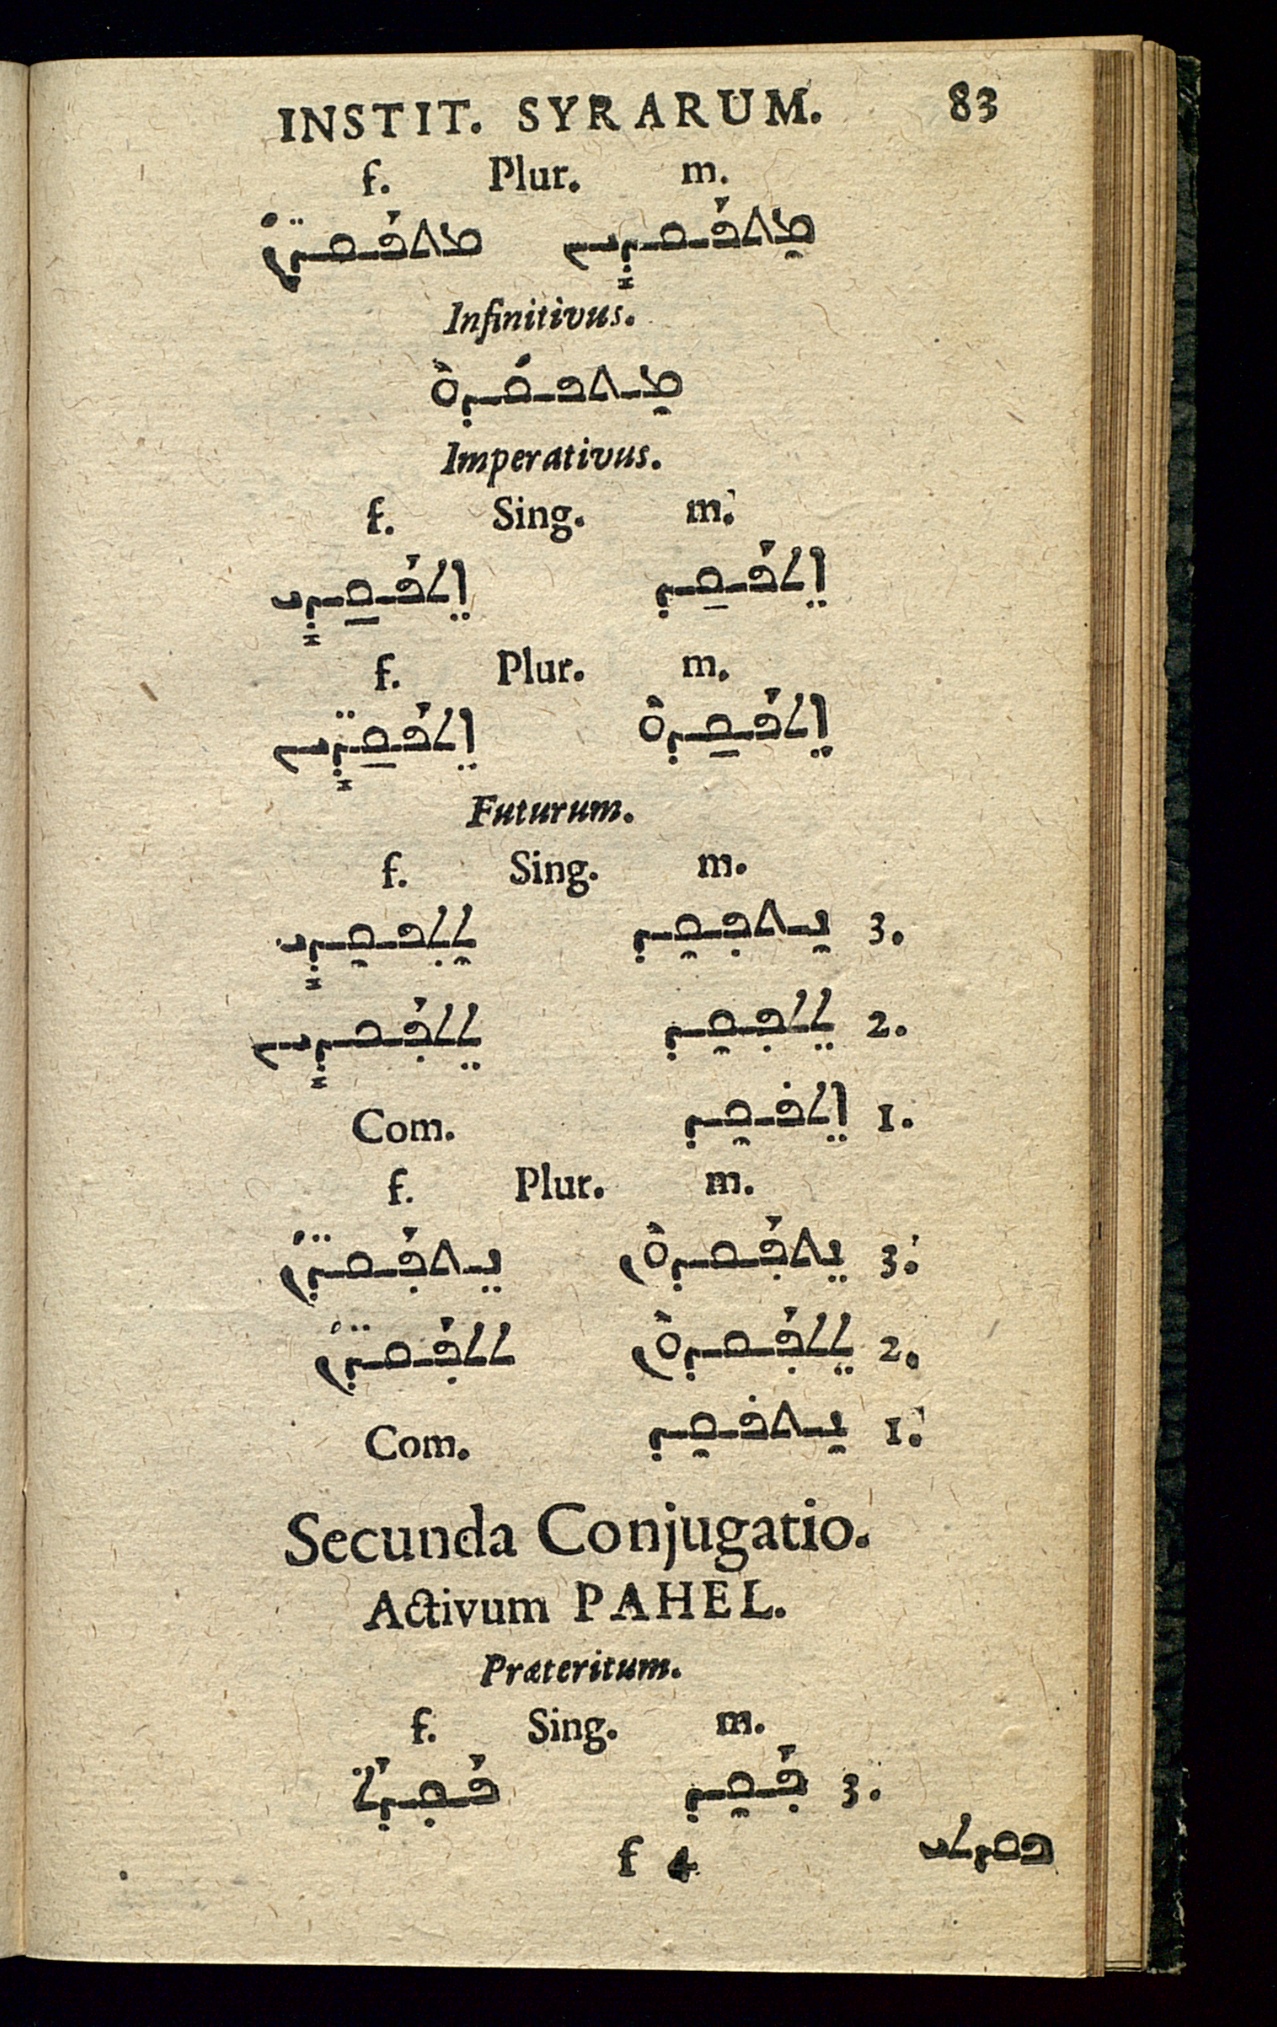 INSTIT. SYRARUM. 83
f. Plur. m.
ܡܬܦܩܕܝܢ ܡܬܦܩܕ̈ܢ
Infinitivus.
ܡܬܦܩܕܘ
Imperativus.
f. Sing. m.
ܐܬܦܩܕ ܐܬܦܩܕܝ
f. Plur. m.
ܐܬܦܩܕܘ ܐܬܦܩܕ̈ܝܢ
Futurum.
f. Sing. m.
3. ܢܬܦܩܕ ܬܬܦܩܕܝ
2. ܬܬܦܩܕ ܬܬܦܩܕܝܢ
1. ܐܬܦܩܕ Com.
f. Plur. m.
3. ܢܬܦܩܕܘܢ ܢܬܦܩܕ̈ܢ
2. ܬܬܦܩܕܘܢ ܬܬܦܩܕ̈ܢ
1. ܢܬܦܩܕ Com.
Secunda Conjugatio.
Activum PAHEL.
Præteritum.
f. Sing. m.
3. ܦܩܕ ܦܩܕܬ
f 4 ܦܩܕܬܝ